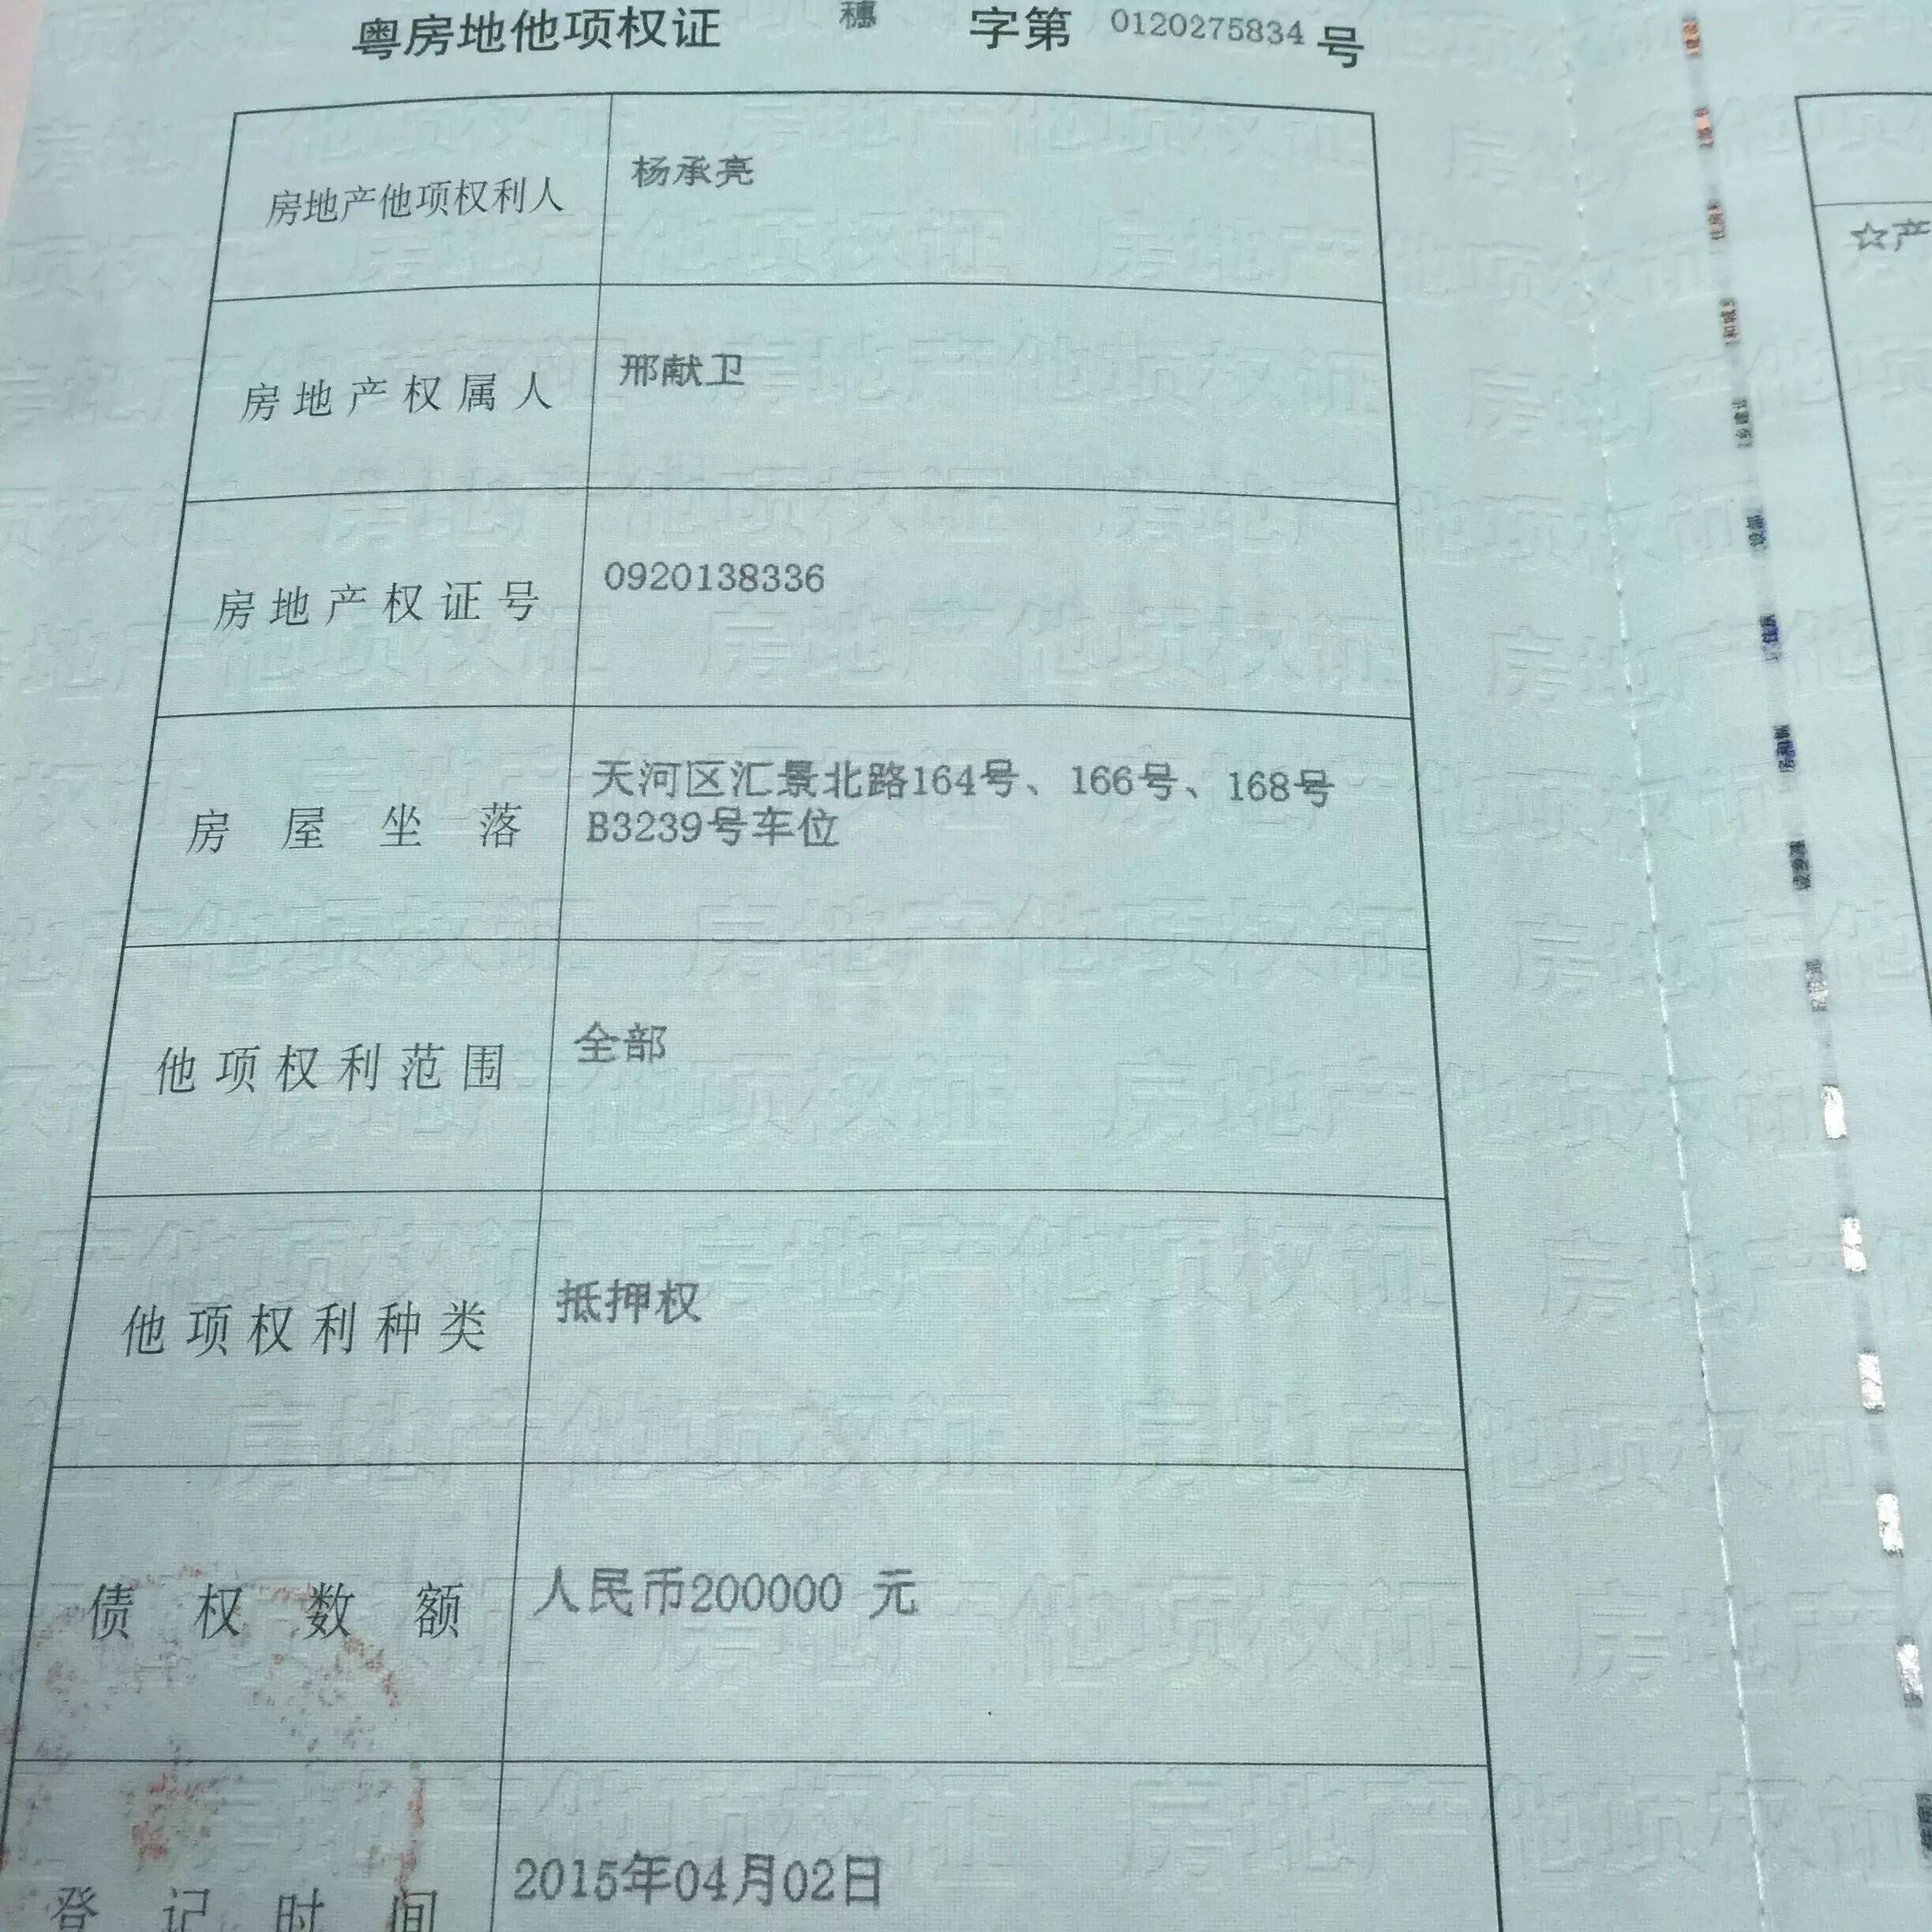 粤房地他项权证 穗 字第 0120275834 号
房地产他项权利人 杨承亮
房地产权属人 邢献卫
房地产权证号 0920138336
房屋坐落 天河区汇景北路164号、166号、168号
B3239号车位
他项权利范围 全部
他项权利种类 抵押权
债权数额 人民币200000 元
登记时间 2015年04月02日
☆产